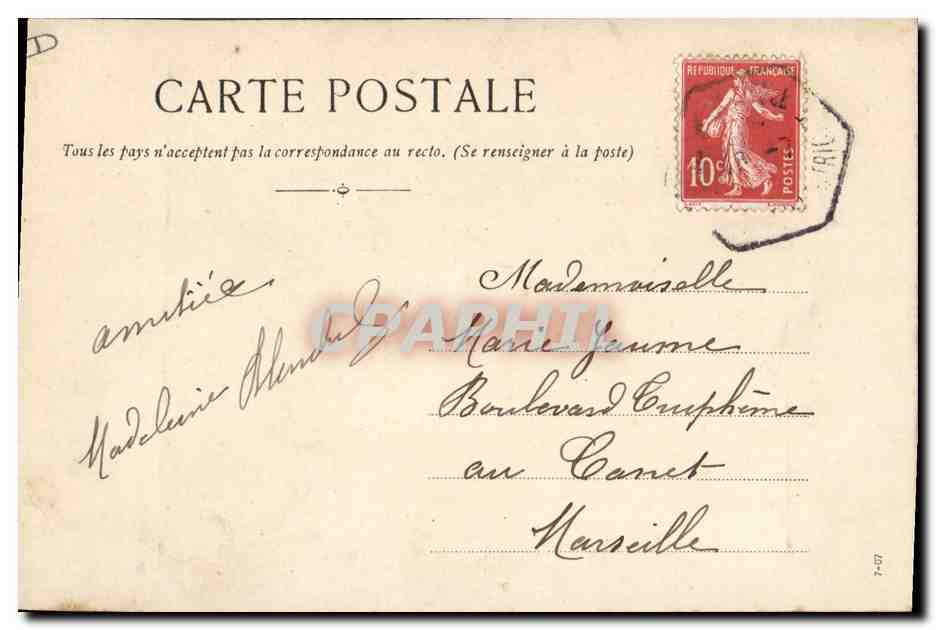 D
CARTE POSTALE
Tous les pays n'acceptent pas la correspondance au recto. (Se renseigner à la poste)
REPUBLIQUE FRANÇAISE
10c
POSTES
TRIC
amitiée
Madeleine
CPAPHIL
Mademoiselle
Marie Jaume
Boulevard Truphème
au Canet
Marseille
7-07